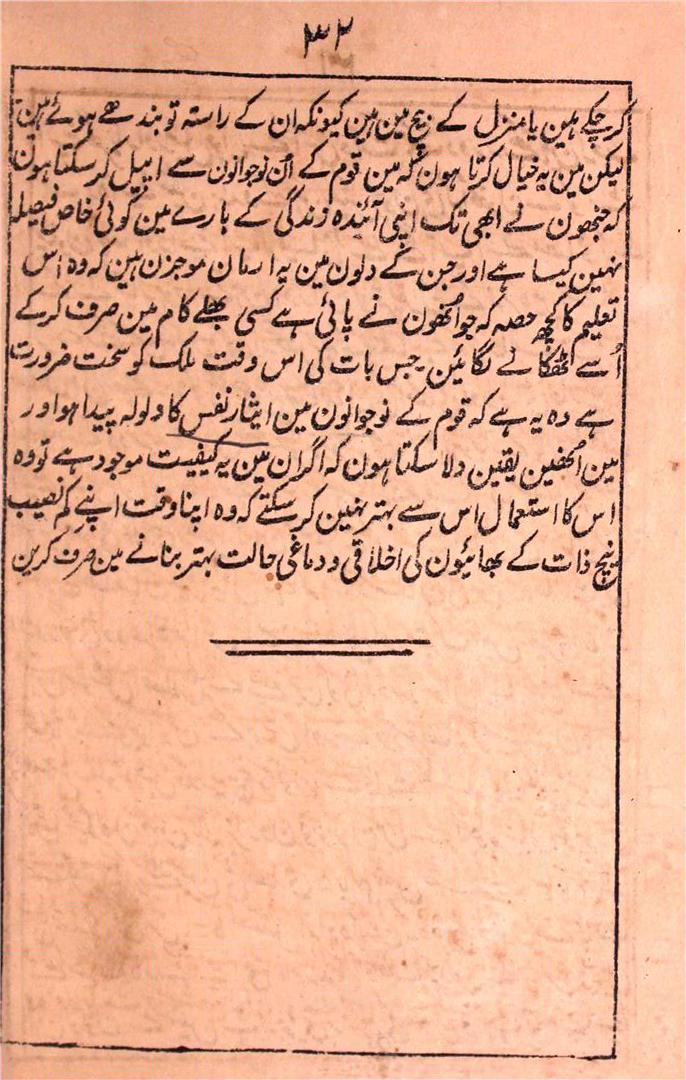 ۳۲
کرچکے ہین یا منزل کے بیچ مین ہین کیونکہ ان کے راستہ تو بندھے ہوئے ہین
لیکن مین یہ خیال کرتا ہون کہ مین قوم کے اُن نوجوانون سے اپیل کرسکتا ہون
کہ جنھون نے ابھی تک اپنی آئندہ زندگی کے بارے مین کوئی خاص فیصلہ
نہین کیا ہے اور جن کے دلون مین یہ ارمان موجزن ہین کہ وہ اس
تعلیم کا کچھ حصہ کہ جو اُنھون نے پائی ہے کسی بھلے کام مین صرف کرکے
اُسے ٹھکانے لگائین جس بات کی اس وقت ملک کو سخت ضرورت
ہے وہ یہ ہے کہ قوم کے نوجوانون مین ایثار نفس کا ولولہ پیدا ہو اور
مین اُنھین یقین دلا سکتا ہون کہ اگر ان مین یہ کیفیت موجود ہے تو وہ
اس کا استعمال اس سے بہتر نہین کرسکتے کہ وہ اپنا وقت اپنے کم نصیب
نیچ ذات کے بھائیون کی اخلاقی و دماغی حالت بہتر بنانے مین صرف کرین